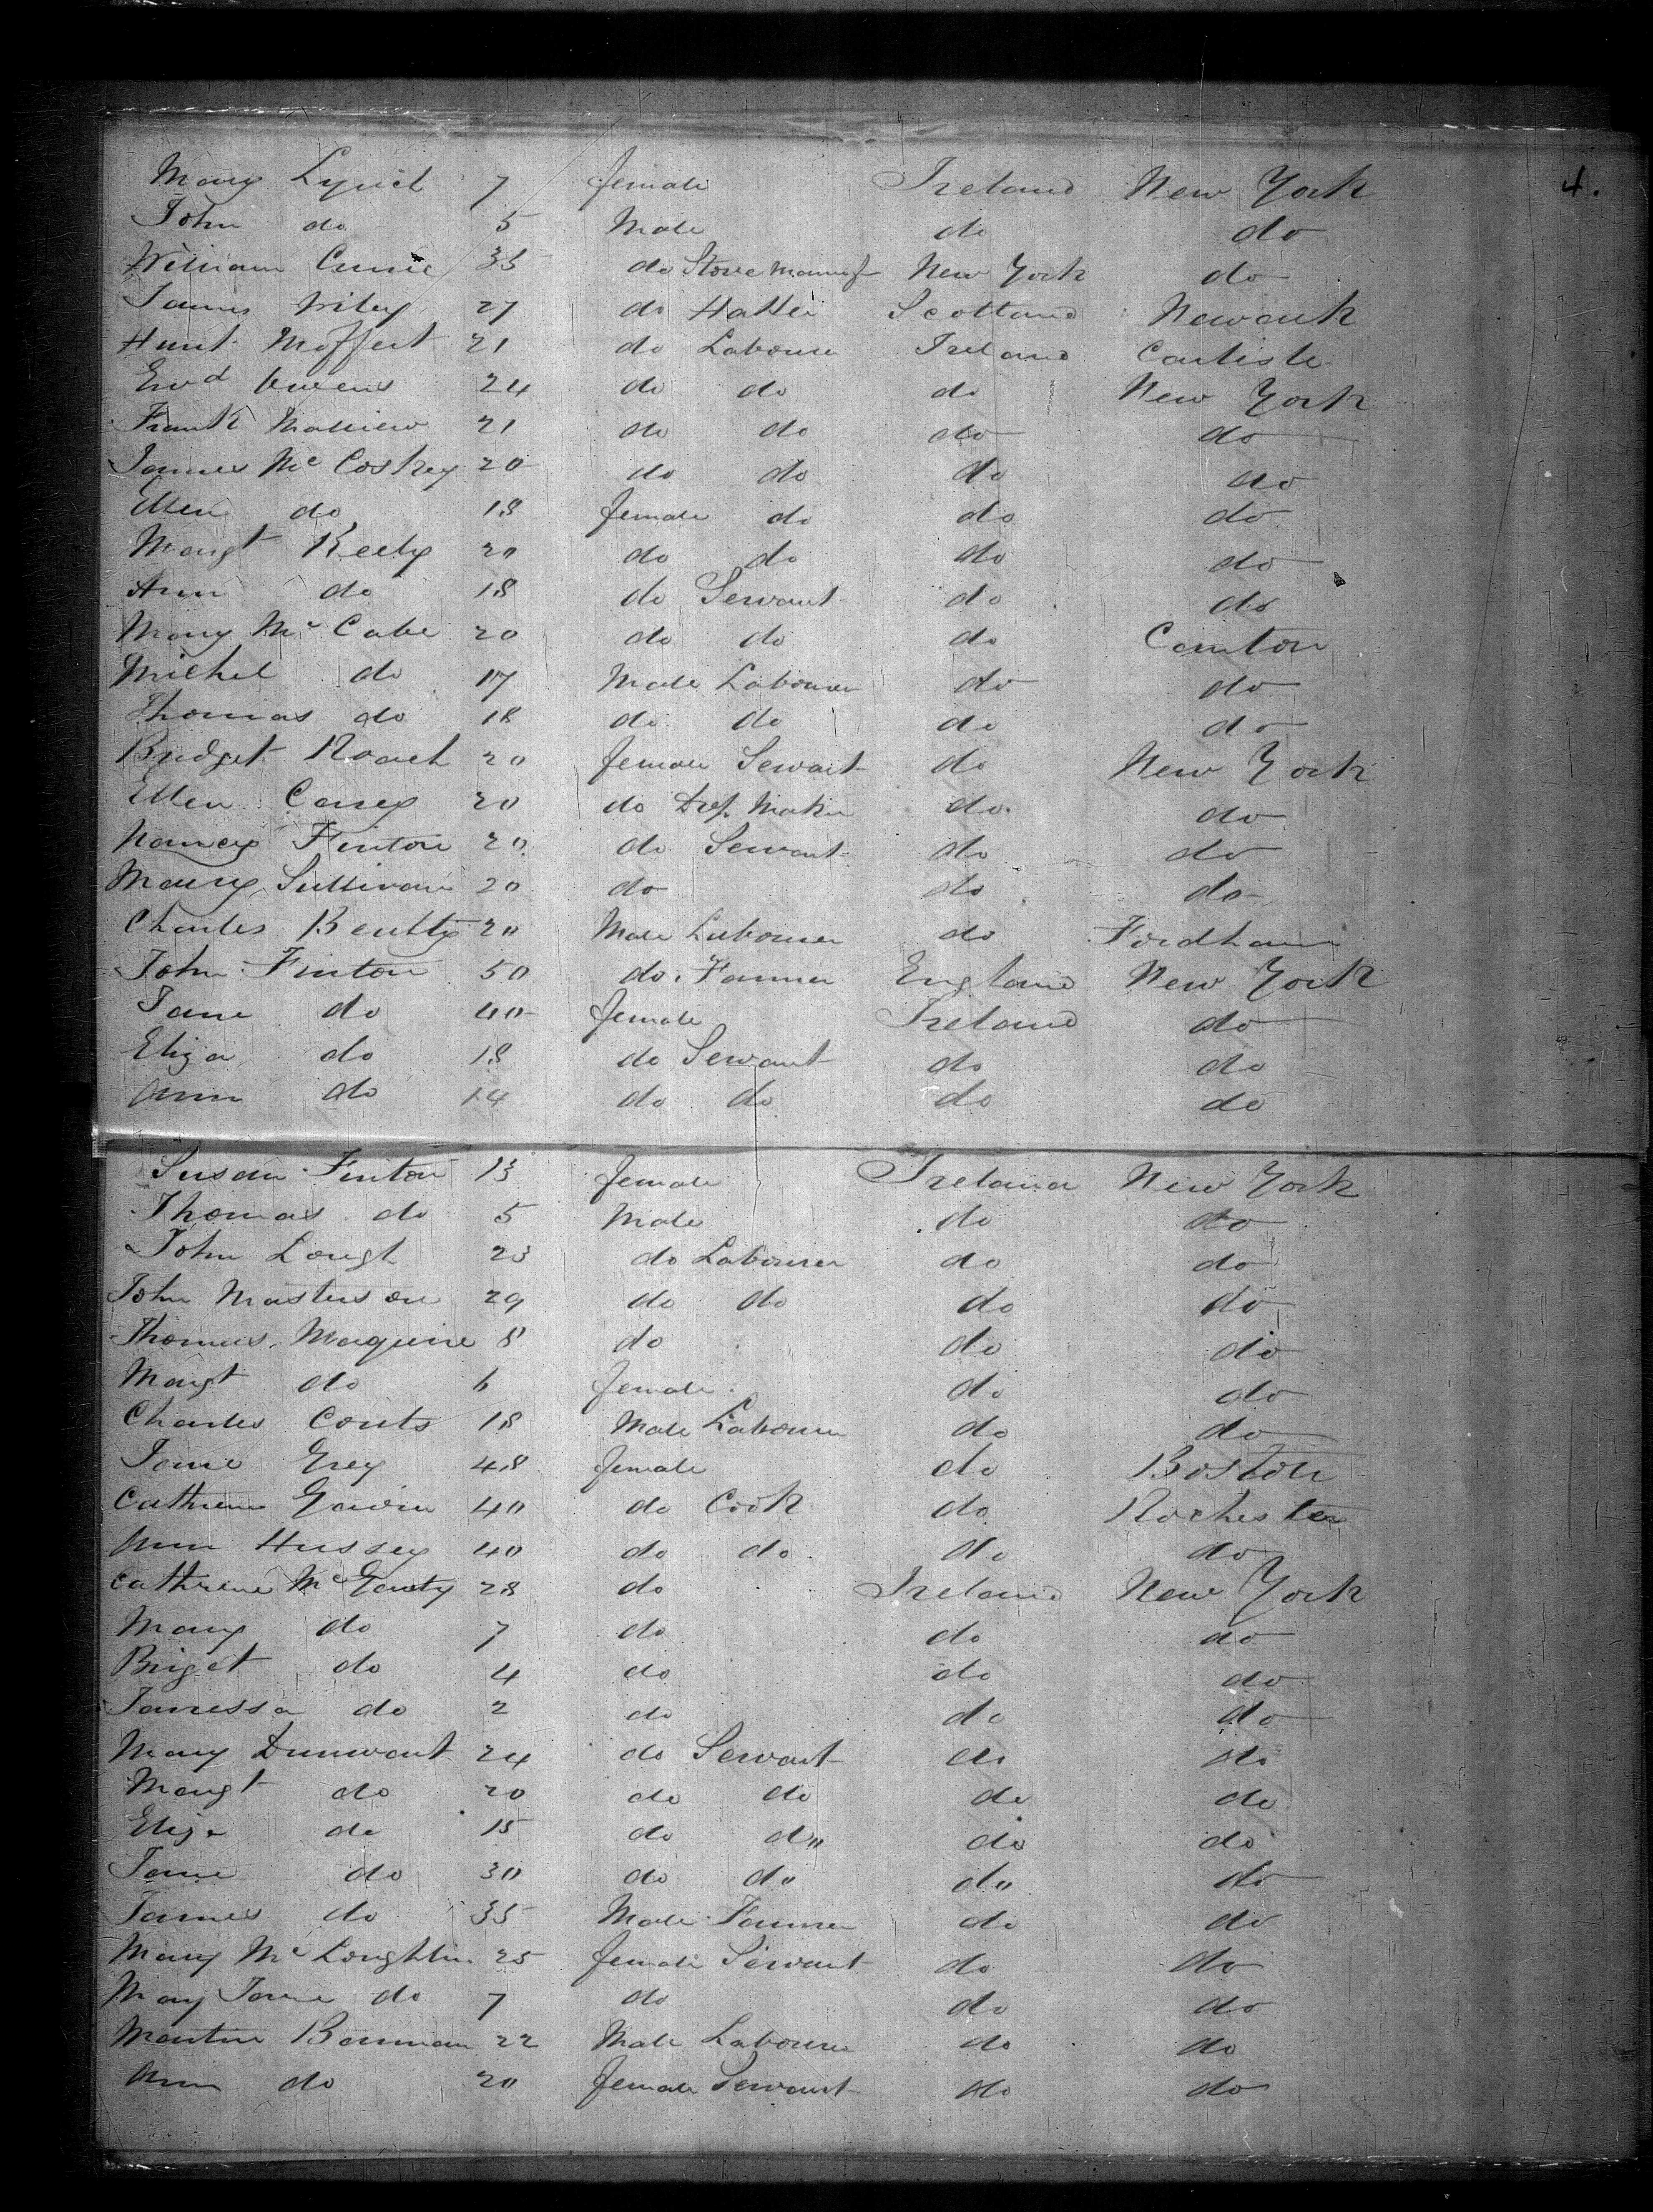 4.
Mary Lynch 7 female Ireland New York
John do 5 Male do do
William 35 do Stove Manuf New York do
James Wiley 27 do Hatter Scotland Newark
Hunt Moffert 21 do Labourer Ireland Carlisle
Ewd Owens 24 do do do New York
Frank 21 do do do do
James Mc Coskey 20 do do do do
Ellen do 18 female do do do
Margt Reely 20 do do do do
Ann do 18 do Servant do do
Mary Mc Cabe 20 do do do Canton
Michel do 17 Male Labourer do do
Thomas do 18 do do do do
Bridget Roach 20 female Servant do New York
Ellen Carey 20 do Drs. Maker do do
Nancy Finton 20 do Servant do do
Maury Sullivan 20 do do do
Charles Beutty 20 Male Labourer do Fordham
John Finton 50 do Farmer England New York
Jane do 40 female Ireland do
Eliza do 18 do Servant do do
Ann do 14 do do do do
Susan Finton 13 female Ireland New York
Thomas do 5 Male do do
John Lough 23 do Labourer do do
John Masterson 29 do do do do
Thomas Maguire 8 do do do
Margt do 6 female do do
Charles Couts 18 Male Labourer do do
Jane Grey 48 female do Boston
Cathrine 40 do Cook do Rochester
Ann Hussey 40 do do do do
Cathrine Mc Genty 28 do Ireland New York
Mary do 7 do do do
Briget do 4 do do do
Janessa do 2 do do do
Mary Dunwart 24 do Servant do do
Margt do 20 do do do do
Eliza do 15 do do do do
Jane do 30 do do do do
James do 35 Male Farmer do do
Mary Mc Loughlin 25 female Servant do do
Mary Jane do 7 do do do
Martin Bannan 22 Male Labourer do do
Ann do 20 female Servant do do